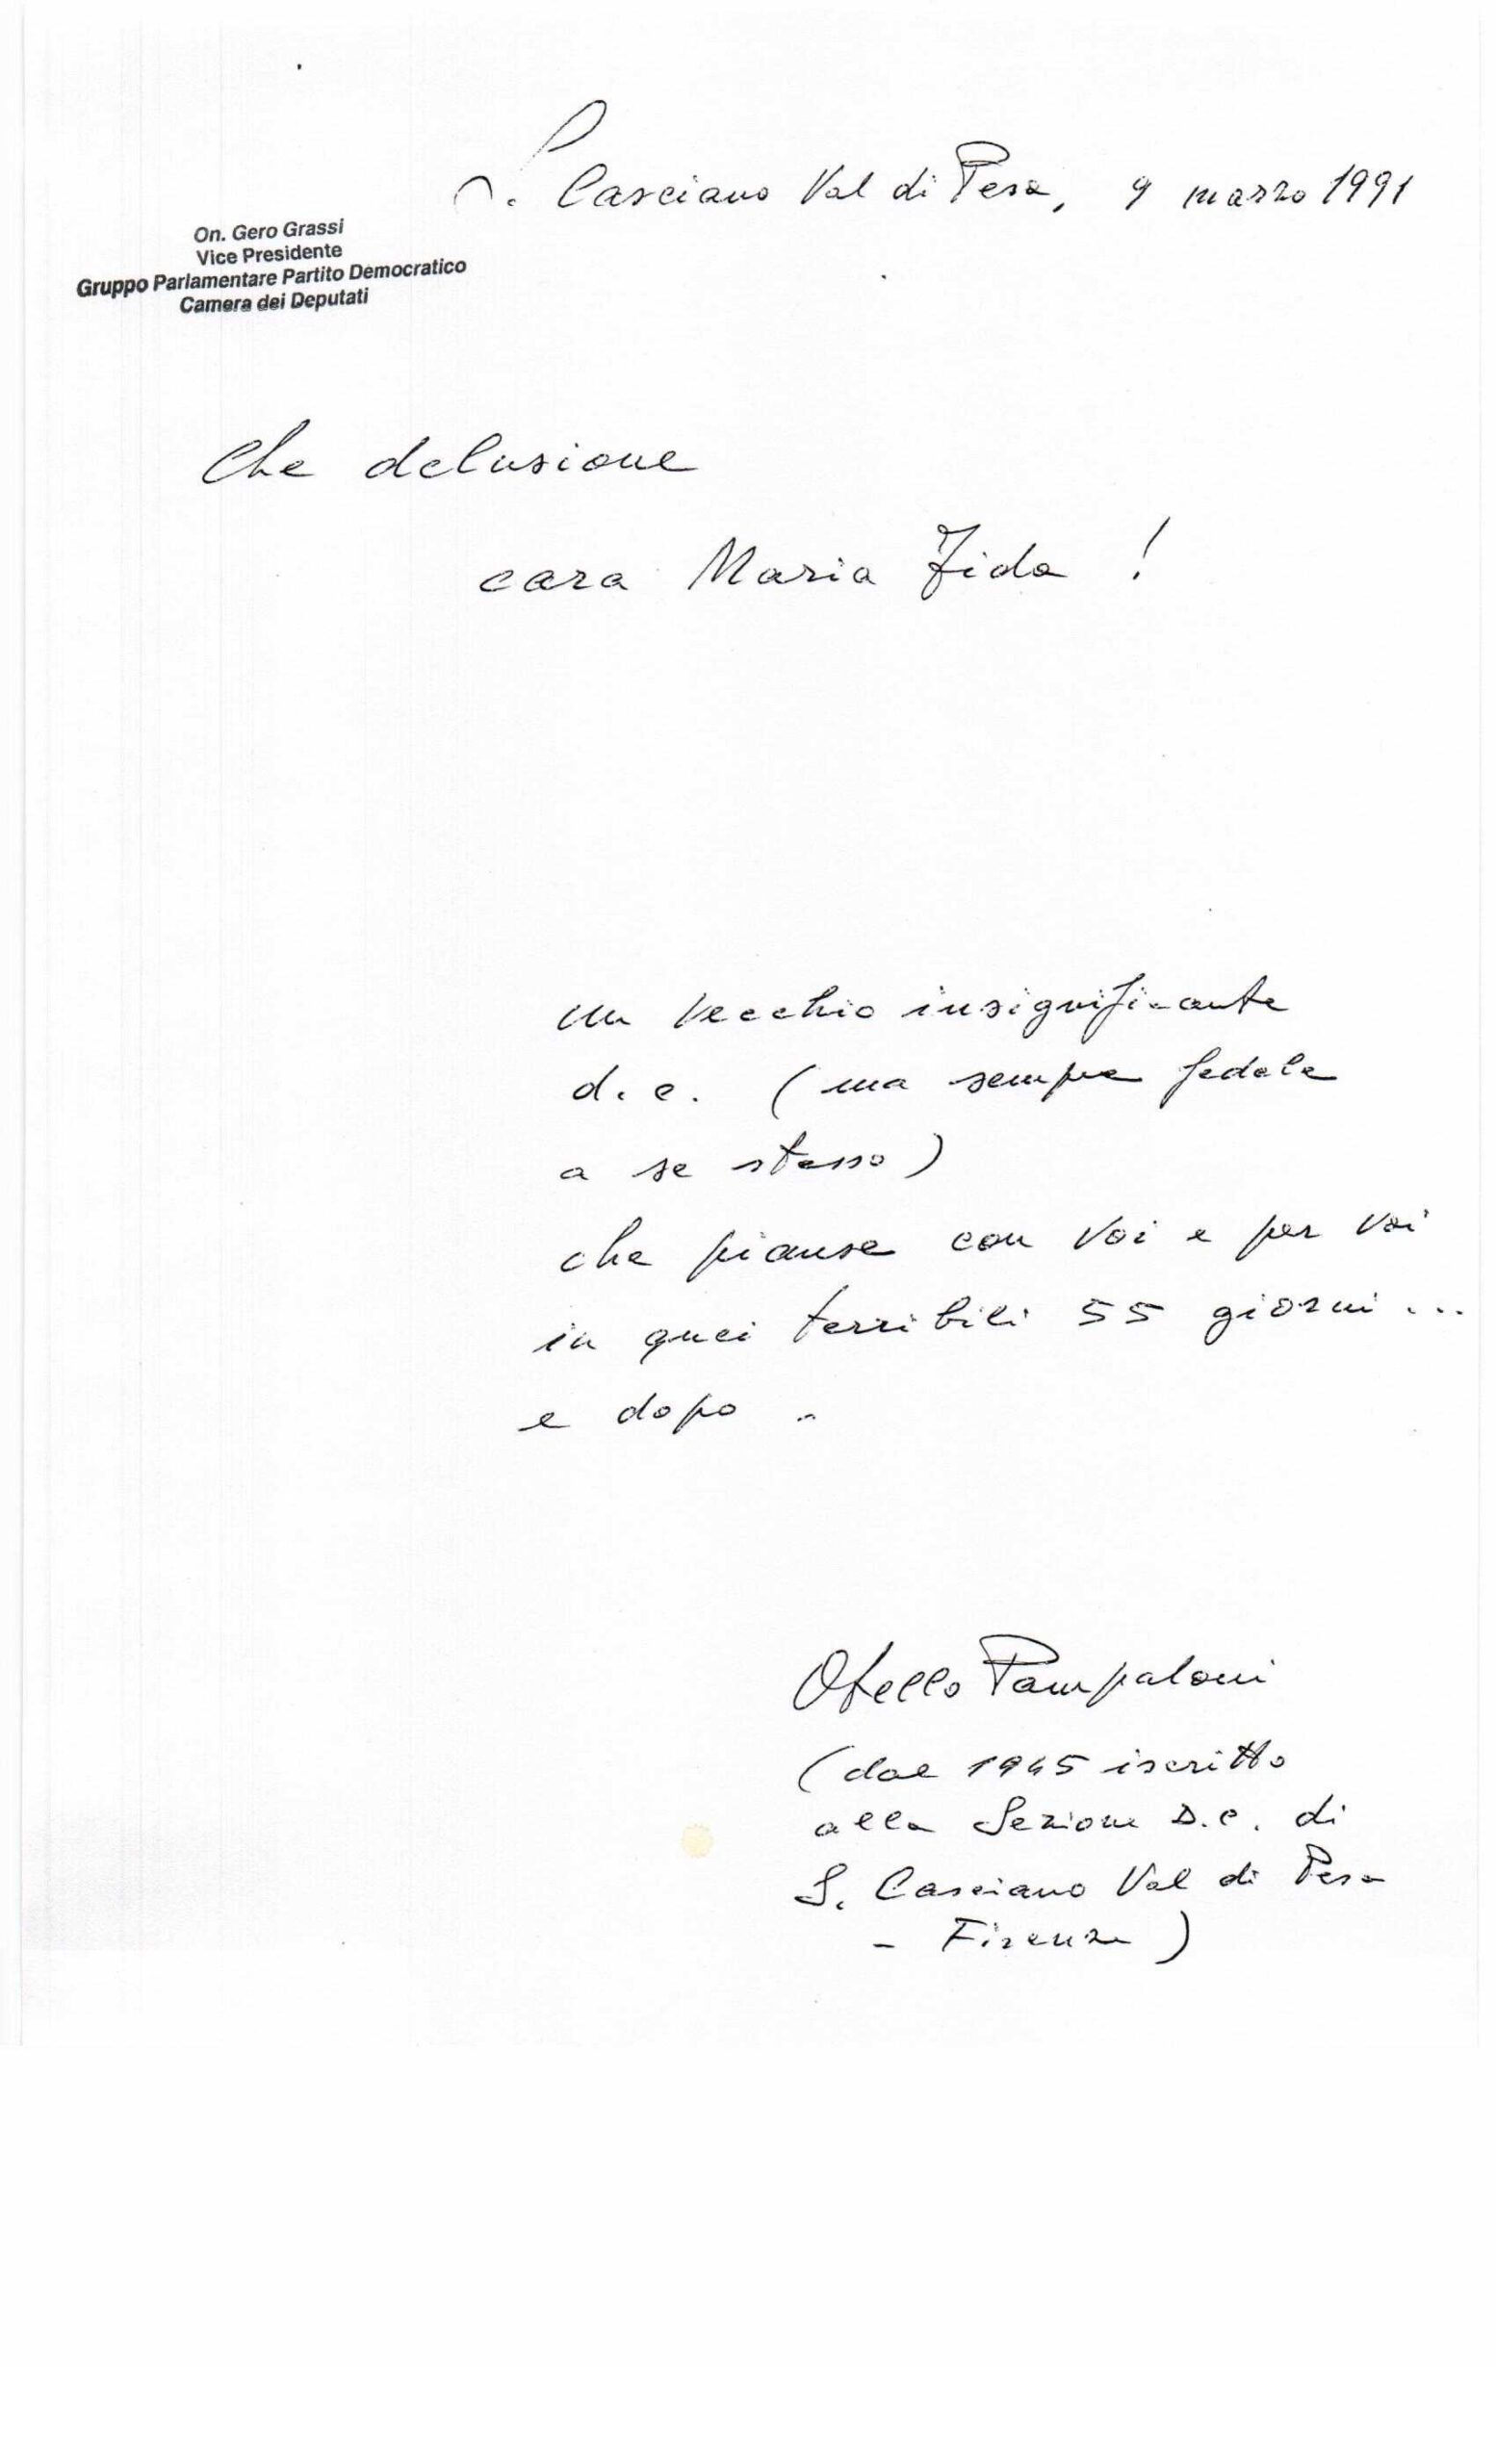 S. Casciano Val di Pesa, 9 marzo 1991
On. Gero Grassi
Vice Presidente
Gruppo Parlamentare Partito Democratico
Camera dei Deputati
Che delusione
cara Maria Fida !
un vecchio insignificante
d.c. (ma sempre fedele
a se stesso)
che pianse con Voi e per Voi
in quei terribili 55 giorni...
e dopo..
Otello Pampaloni
(dal 1945 iscritto
alla Sezione D.C. di
S. Casciano Val di Pesa
- Firenze)